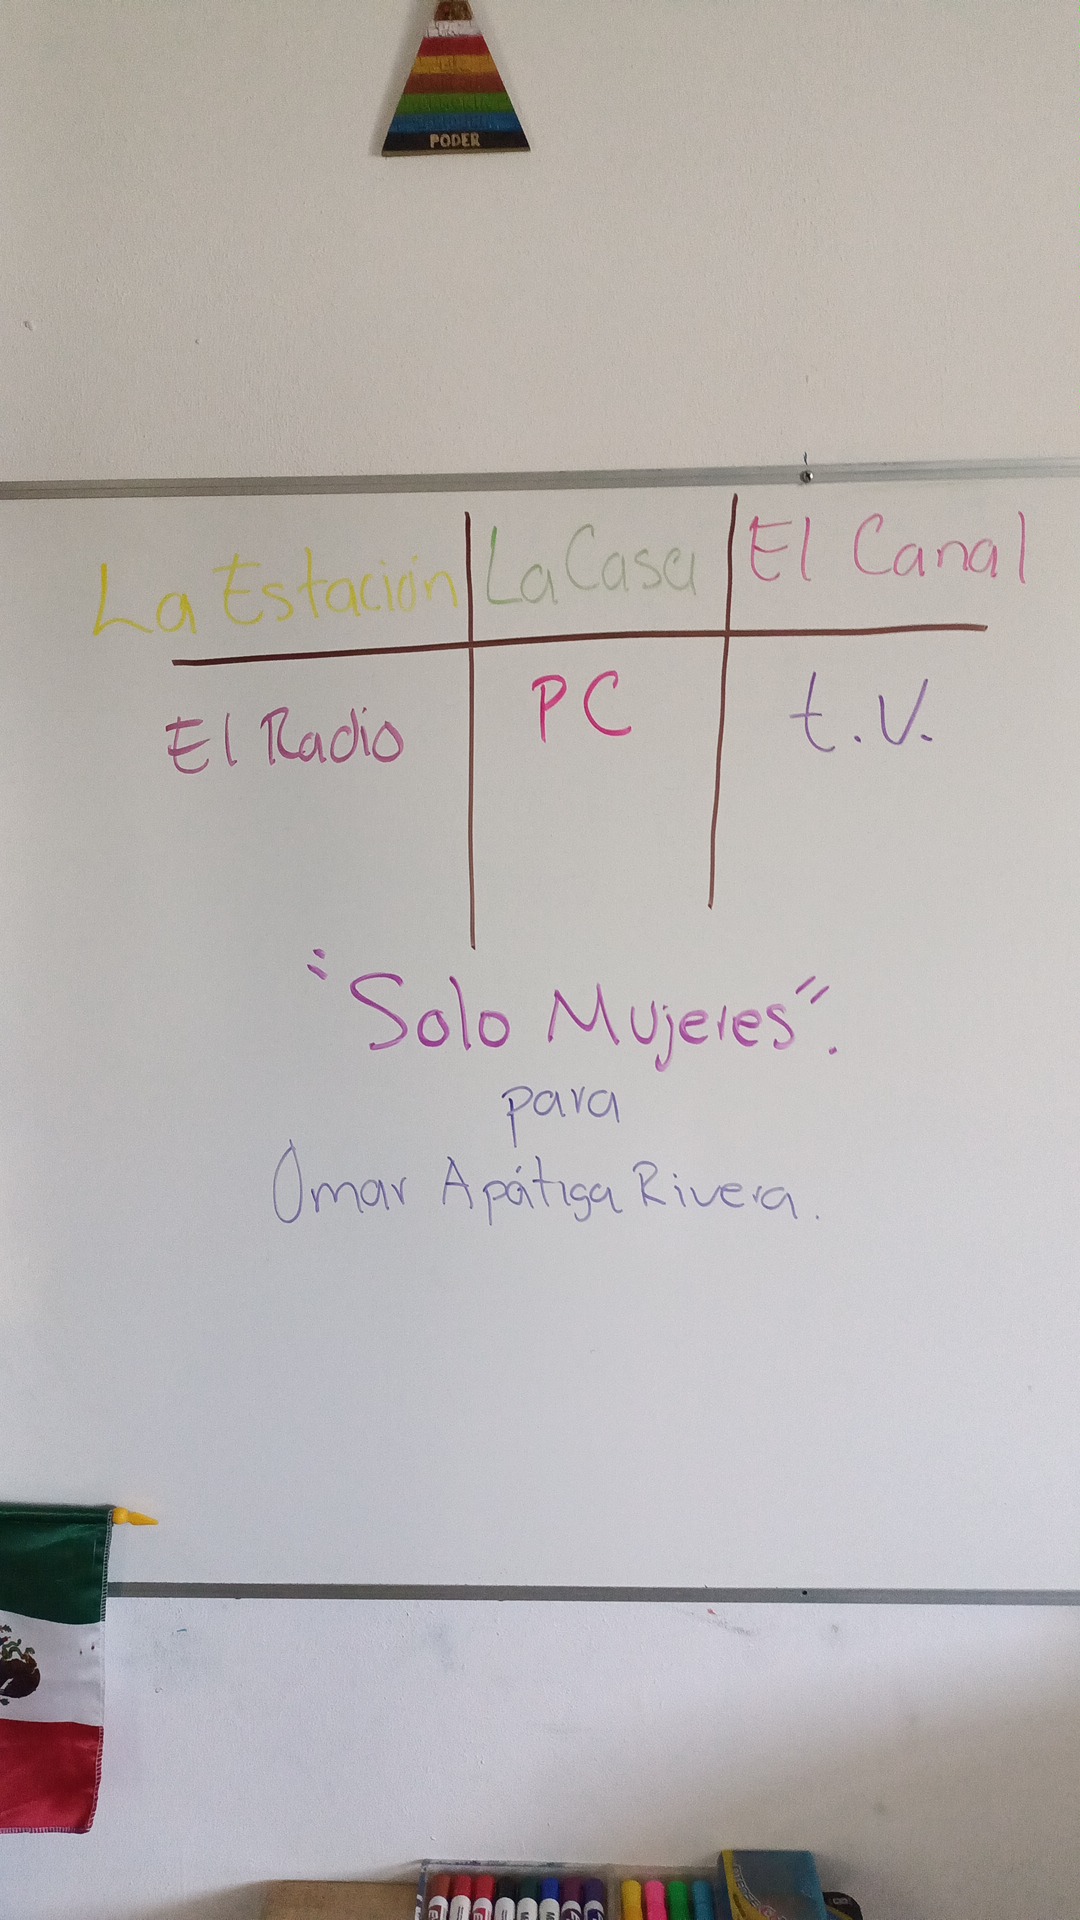 PODER
La Estación La Casa El Canal
El Radio PC t.V.
"Solo Mujeres".
para
Omar Apátiga Rivera.